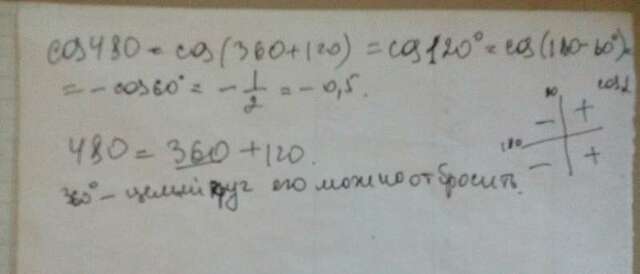 cos480 = cos(360+120) = cos120° = cos(180-60°)=
= -cos60° = -1/2 = -0,5.
90 cosα
- +
180
- +
480 = 360 + 120.
360° - целый круг его можно отбросить.